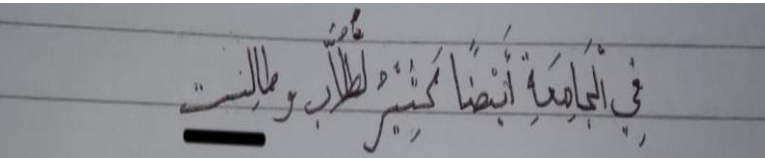 فِي الْجَامِعَةِ أَيْضًا كَثِيْرُ لطُلَّابٌ و